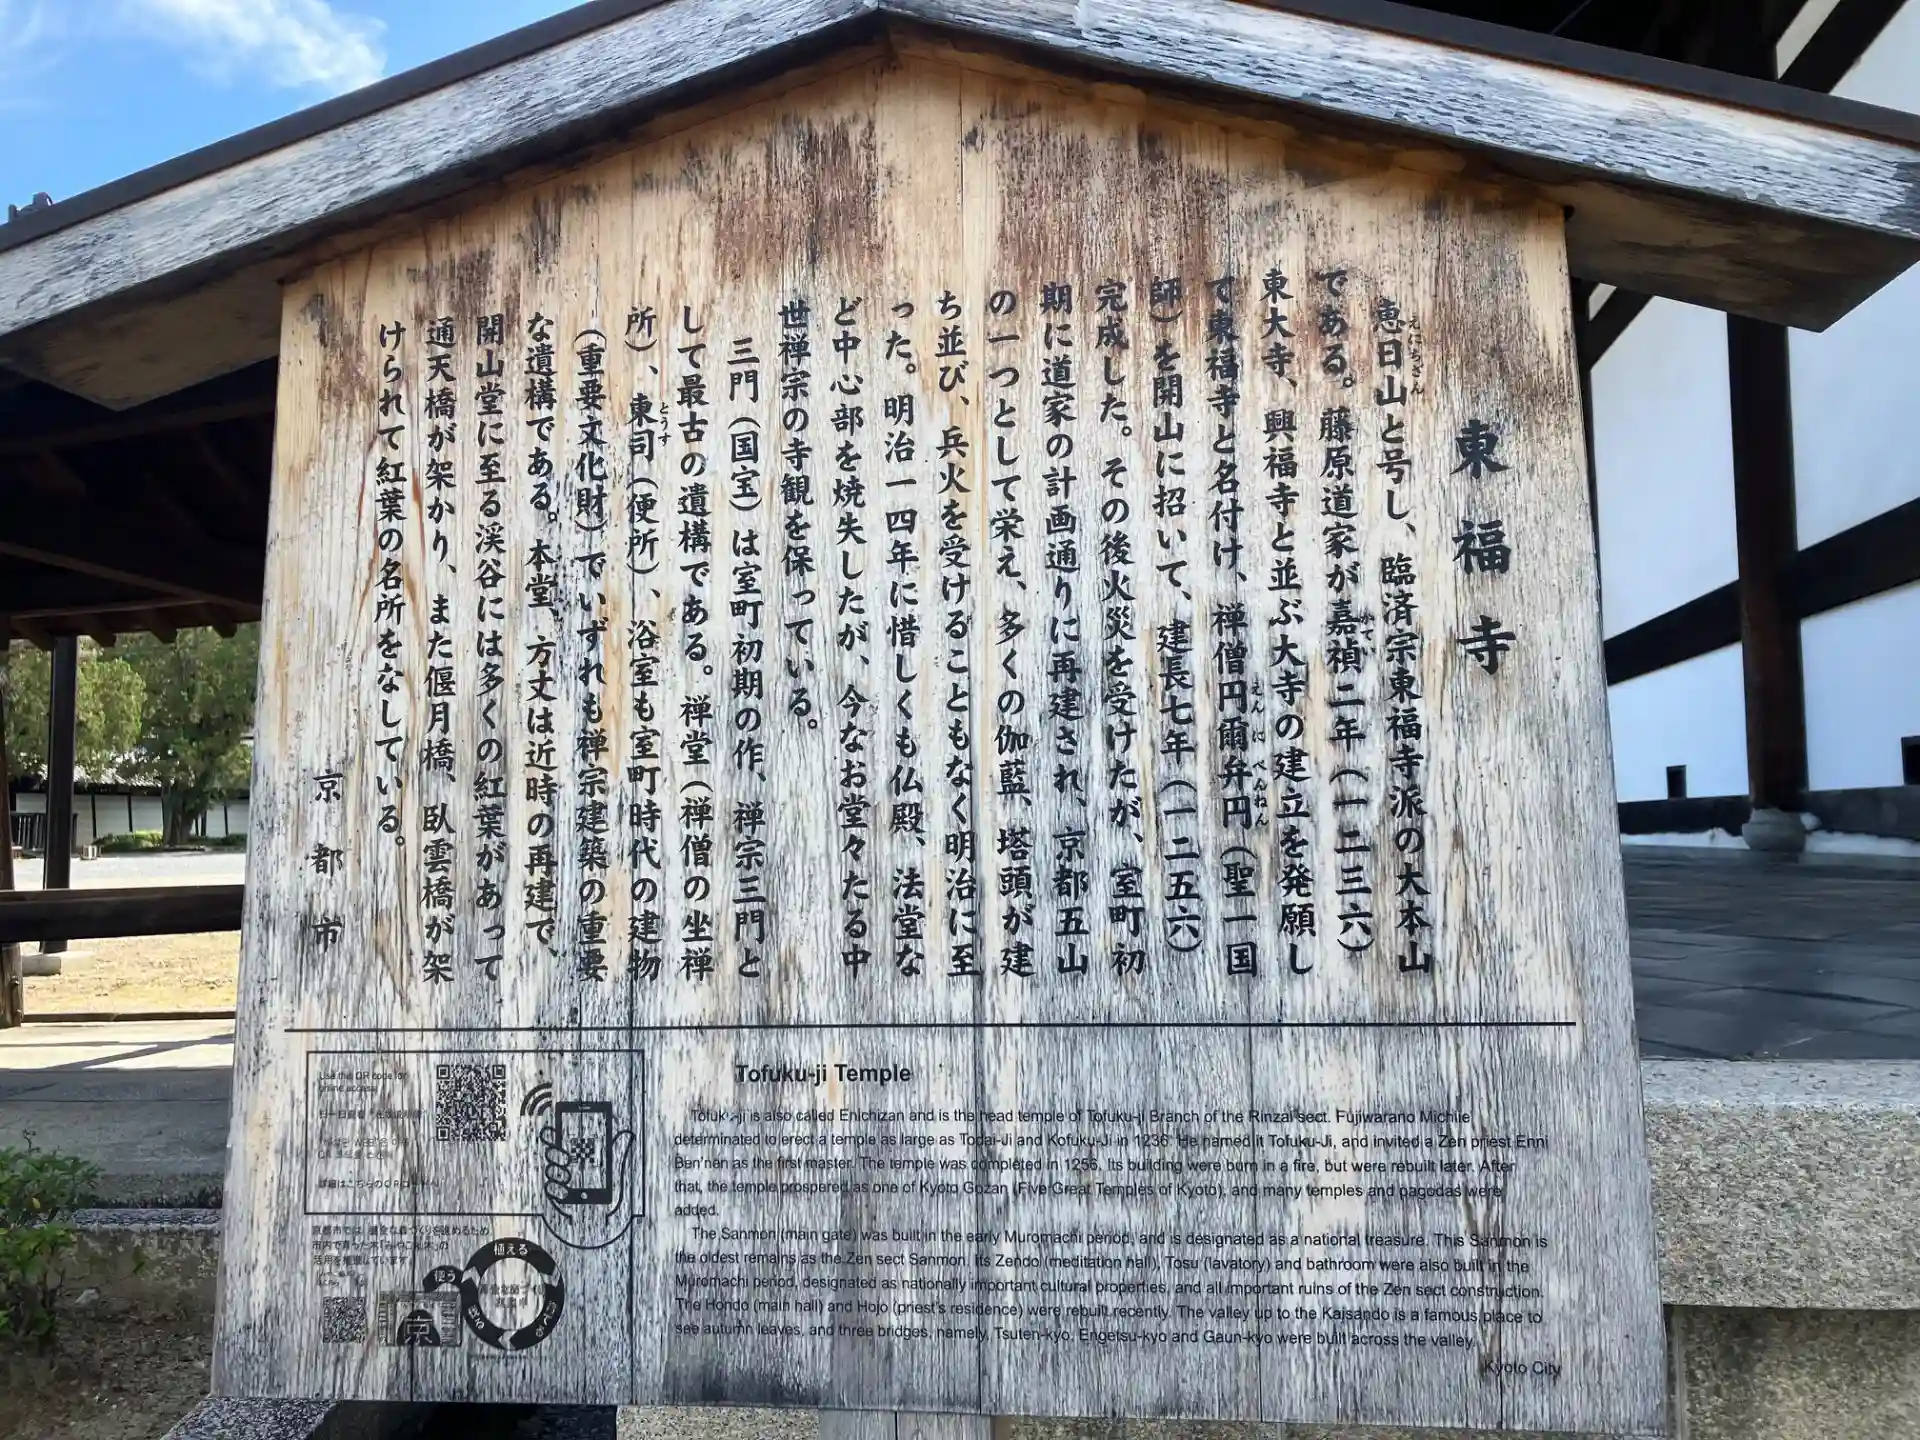 東福寺
恵日山と号し、臨済宗東福寺派の大本山
えにちさん
である。藤原道家が嘉禎二年（一二三六）
かてい
東大寺、興福寺と並ぶ大寺の建立を発願し
て東福寺と名付け、禅僧円爾弁円（聖一国
えんに べんねん
師）を開山に招いて、建長七年（一二五六）
完成した。その後火災を受けたが、室町初
期に道家の計画通りに再建され、京都五山
の一つとして栄え、多くの伽藍、塔頭が建
ち並び、兵火を受けることもなく明治に至
った。明治一四年に惜しくも仏殿、法堂な
ど中心部を焼失したが、今なお堂々たる中
世禅宗の寺観を保っている。
三門（国宝）は室町初期の作、禅宗三門と
して最古の遺構である。禅堂（禅僧の坐禅
所）、東司（便所）、浴室も室町時代の建物
とうす
（重要文化財）でいずれも禅宗建築の重要
な遺構である。本堂、方丈は近時の再建で、
開山堂に至る渓谷には多くの紅葉があって
通天橋が架かり、また偃月橋、臥雲橋が架
けられて紅葉の名所をなしている。
京都市
Tofuku-ji Temple
Tofuku-ji is also called Enichizan and is the head temple of Tofuku-ji Branch of the Rinzai sect. Fujiwarano Michiie
determinated to erect a temple as large as Todai-Ji and Kofuku-Ji in 1236. He named it Tofuku-Ji, and invited a Zen priest Enni
Ben'nen as the first master. The temple was completed in 1256. Its building were burn in a fire, but were rebuilt later. After
that, the temple prospered as one of Kyoto Gozan (Five Great Temples of Kyoto), and many temples and pagodas were
added.
The Sanmon (main gate) was built in the early Muromachi period, and is designated as a national treasure. This Sanmon is
the oldest remains as the Zen sect Sanmon. Its Zendo (meditation hall), Tosu (lavatory) and bathroom were also built in the
Muromachi period, designated as nationally important cultural properties, and all important ruins of the Zen sect construction.
The Hondo (main hall) and Hojo (priest's residence) were rebuilt recently. The valley up to the Kaisando is a famous place to
see autumn leaves, and three bridges, namely, Tsuten-kyo, Engetsu-kyo and Gaun-kyo were built across the valley.
Kyoto City
Use this QR code for
online access
詳細はこちらのQRコードへ
京都市では、健全な森づくりを進めるため
市内で育った木「みやこ杣木」の
活用を推進しています
植える
使う
京